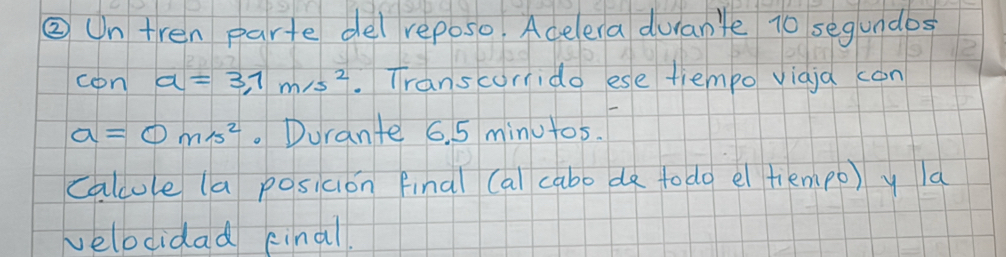 ② Un tren parte del reposo. Acelera durante 10 segundos
con a = 3,1 m/s². Transcurrido ese tiempo viaja con
a = 0 m/s². Durante 6.5 minutos.
Calcule la posición final (al cabo de todo el tiempo) y la
velocidad final.